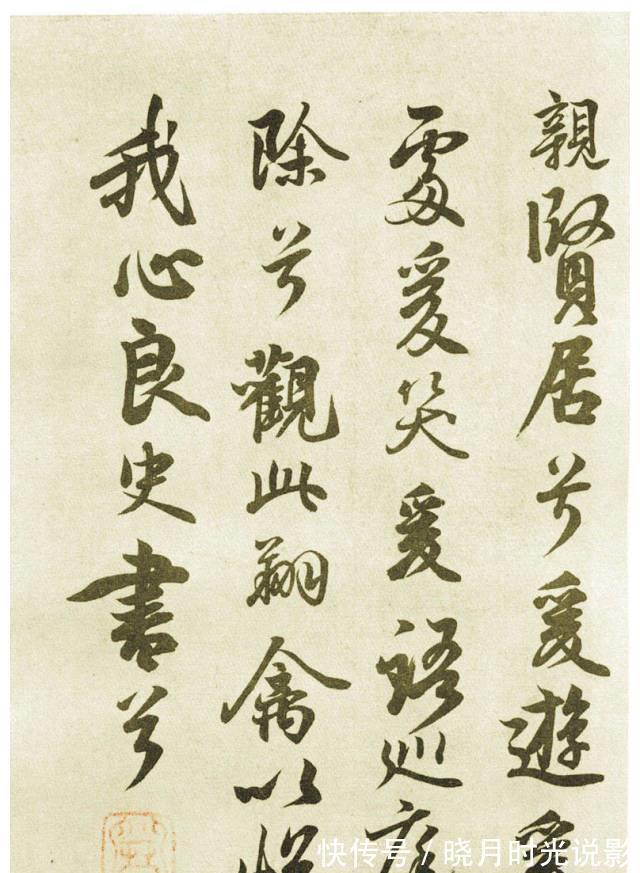 親賢居兮爰遊爰
處爰笑爰語巡庭
除兮觀此翔禽以悦
我心良史書兮
快传号 / 晓月时光说影